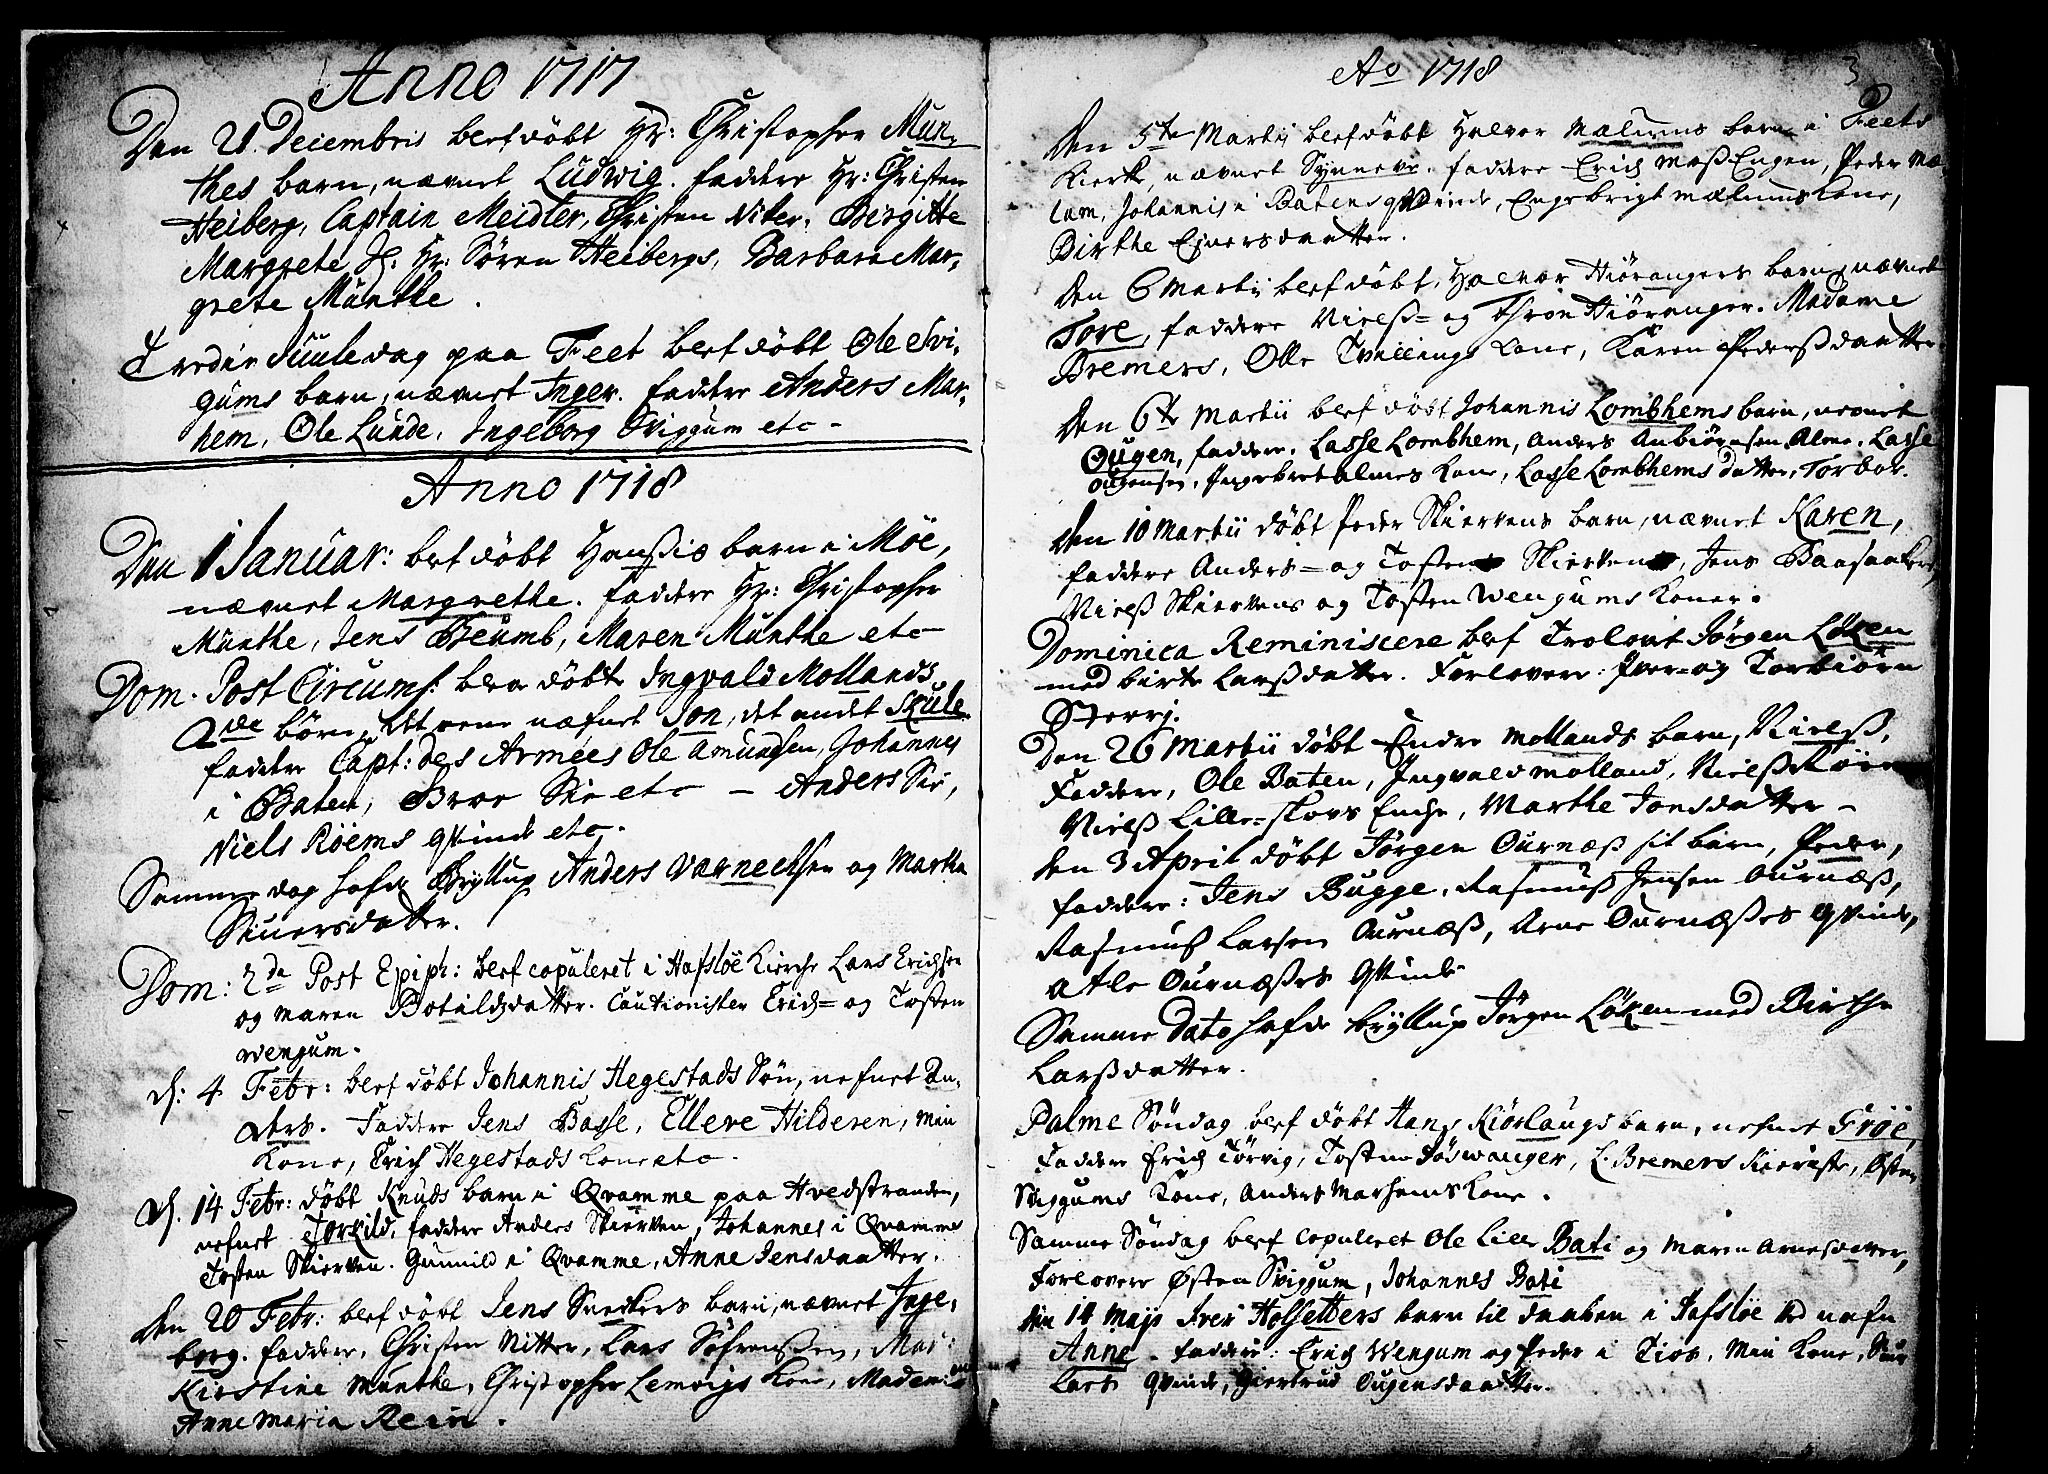 Anno 1717
Den 21 Decembris blef döbt Hr: Christopher Mün-
thes barn, nævnet Ludwig. faddere Hr: Christen
Heiberg, Captain Meidler, Christen Niter, Birgitte
Margrete Sl. Hr: Sören Heibergs, Barbara Mar-
grete Münthe.
Tredie Juuledag paa Feet blef döbt Ole Svi-
gums barn, nævnet Inger. faddere Anders Mar-
hem, Ole Lunde, Ingeborg Sviggum etc
Anno 1718
Den 1 Januar: blef döbt barn i Möe,
nævnet Margrethe. faddere Hr: Christopher
Münthe, Jens Maren Münthe etc
Dom. Post Circums: blev döbte Ingvald Mollands
2de börn, det eene næfnet Jon, det andet Skule
faddere Capt: des Armées Ole Amundsen, Johannes
i Baten, etc Anders
Niels Röems qvinde etc.
Samme dag hafde Bryllup Anders og Marthe
Siuersdatter.
Dom: 2da Post Epiph: blef copuleret i Hafsloe Kierche Lars Erichsen
og Maren Botaildzdatter. Cautionister Erich= og Tosten
Wengum.
d: 4 Febr: blef döbt Johannis Hegestads Sön, nefnet An-
ders. Faddere Jens Basse, Ellere Hilderen, min
Kone, Erich Hegestads Kone etc
d. 14 Febr: döbt Knuds barn i Qvamme paa Hvedstranden,
nefnet Torkild, faddere Anders Skierven, Johannes i Qvamme
Tosten Skierven. Gunnild i Qvamme, Anne Jensdaatter.
Den 20 Febr: blef döbt Jens Snedkers barn, nævnet Inge-
borg. faddere, Christen Nitter, Lars Söfrenssen, Mar:
Kirstine Münthe, Christopher Lemvigs Kone, Madem:
Anne Maria Rein.
Ao 1718
3
Den 5te Martij blef döbt Halvor Mælums barn i Feets
Kierke, nævnet Synneve. faddere Erich MossEngen, Peder Mæ-
lum, Johannis i Batens qvinde, Engebrigt Mælums Kone,
Birthe Ejnersdaatter.
Den 6 Martij blef döbt, Halvor Hiörangers barn, nævnet
Tore, faddere Nielss= og Thron Hiöranger. Madame
Bremers, Olle Kone, Karen Pedersdaatter
Den 6te Martii blef döbt Johannis Lombhems barn, nevnet
Ougen, faddere, Lasse Lombhem, Anders Anbiörnsen Alme, Lasse
Ougensen, Ingebret Almes Kone, Lasse Lombhems datter, Torbor.
Den 10 Martii döbt Peder Skiervens barn, nævnet Karen,
faddere Anders= og Tosten Skierven, Jens
Nielss Skiervens og Tosten Wengums Koner.
Dominica Reminiscere blef Trolovet Jörgen Löken
med Birte Larssdatter. Forlovere: Iver= og Torbiörn
Den 26 Martii döbt Endre Mollands barn, Nielss,
Faddere, Ole Baten, Ingvald Molland, Nielss Röim
Nielss Lille-skovs Enche, Marthe Jonsdatter
Den 3 April döbt Jörgen Ournæss sit barn, Peder,
faddere: Jens Bugge, Rasmuss Jensen Ournæss,
Rasmuss Larsen Ournæss, Arne Ournæsses qvinde,
Atle Ournæsses qvinde
Samme Dato hafde bryllup Jörgen Löken med Birthe
Larssdatter.
Palme Söndag blef döbt Hans Kiörlaugs barn, nefnet Fröe,
Faddere Erich Törvig, Tosten L. Bremers Kieriste, Östen
Sviggums Kone, Anders Marhems Kone.
Samme Söndag blef copuleret Ole Lille Bati og Maren Arnesdatter,
Forlovere Östen Sviggum, Johannes Bati
Den 14 Maji Iver Holsetters barn til daaben i Hafsloe ved nafn
Anne. faddere: Erich Wengum og Peder i Min Kone,
Lars qvinde, Giertrud Ougensdaatter.